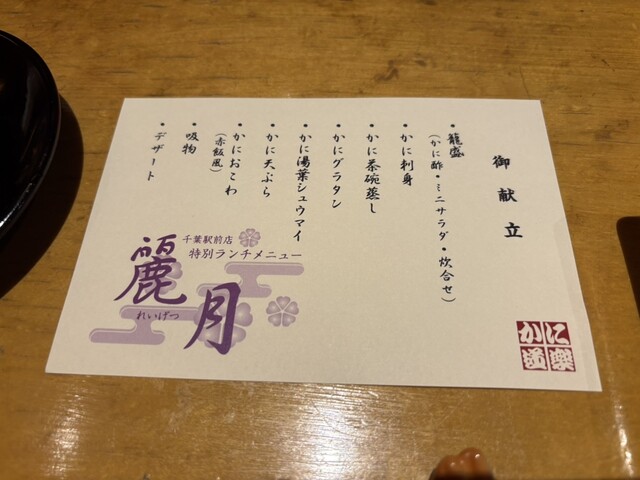 御献立
・籠盛
(かに酢・ミニサラダ・炊合せ)
・かに刺身
・かに茶碗蒸し
・かにグラタン
・かに湯葉シュウマイ
・かに天ぷら
・かにおこわ
(赤飯風)
・吸物
・デザート
千葉駅前店
特別ランチメニュー
麗月
れいげつ
かに道楽